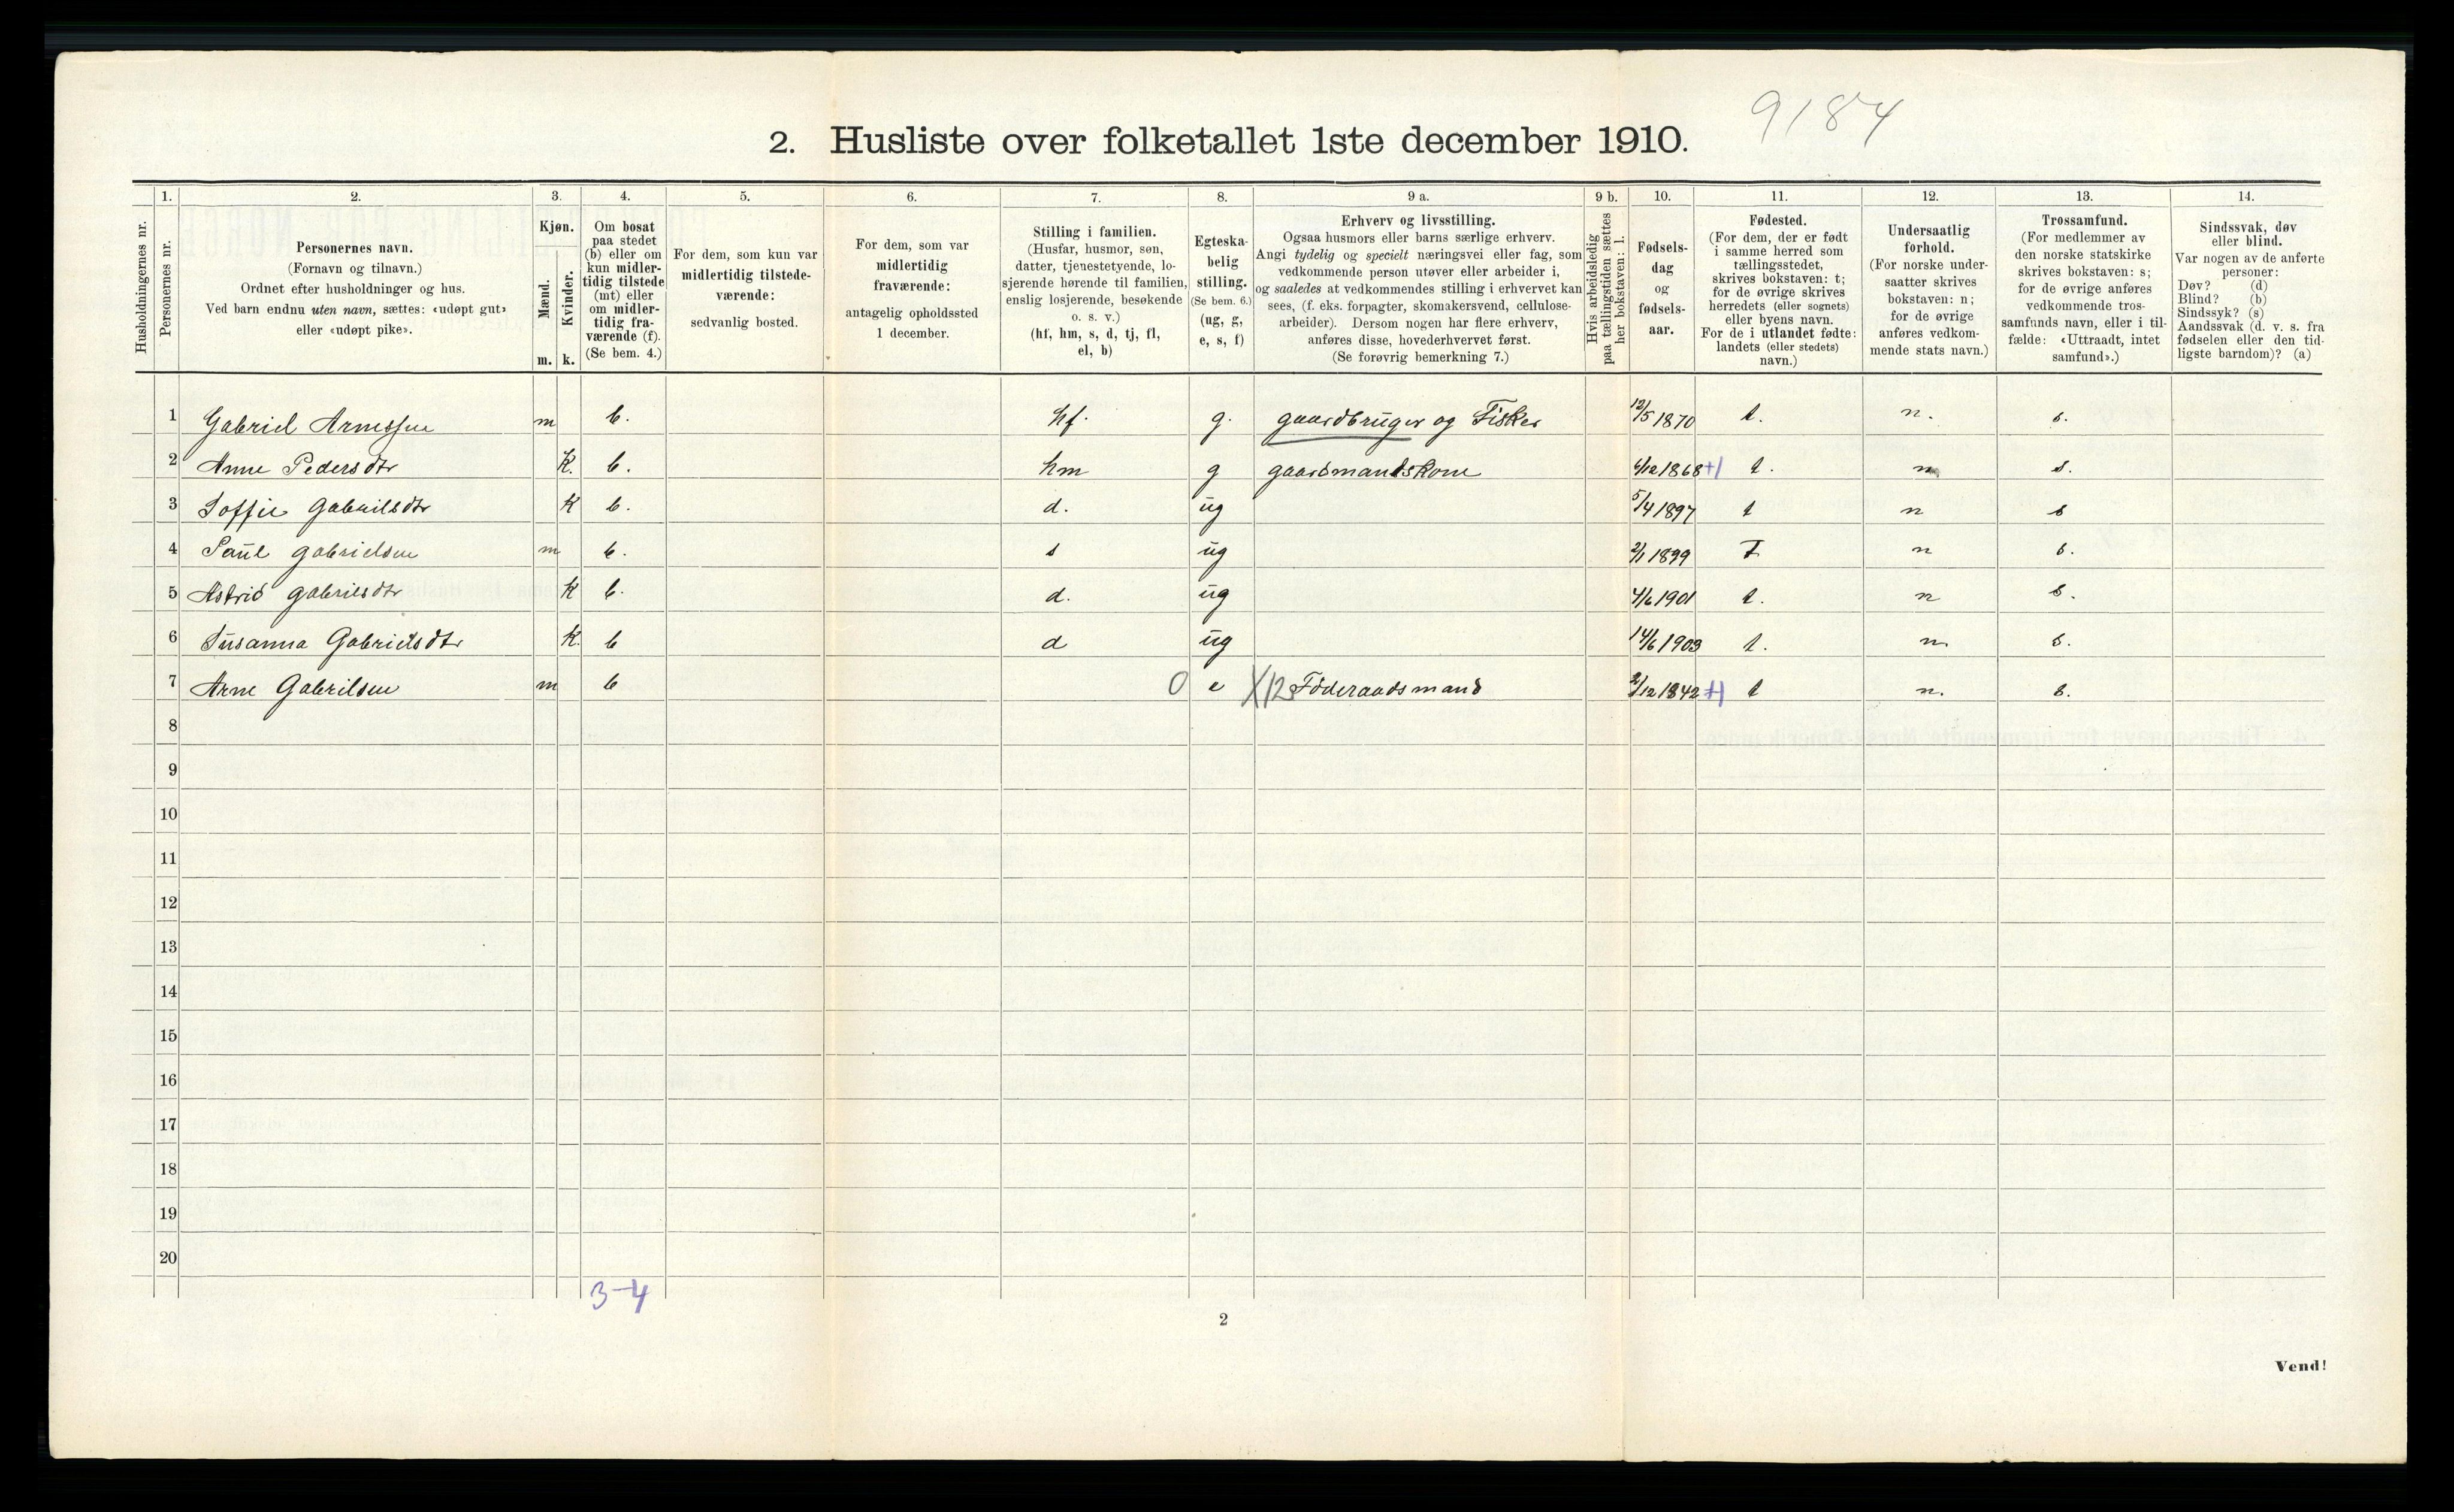 9184
2. Husliste over folketallet 1ste december 1910.
Husholdningernes nr.
1.
Personernes nr.
2.
Personernes navn.
(Fornavn og tilnavn.)
Ordnet efter husholdninger og hus.
Ved barn endnu uten navn, sættes: «udøpt gut»
eller «udøpt pike».
3.
Kjøn.
Mænd.
Kvinder.
m. k.
4.
Om bosat
paa stedet
(b) eller om
kun midler-
tidig tilstede
(mt) eller
om midler-
tidig fra-
værende (f).
(Se bem. 4.)
5.
For dem, som kun var
midlertidig tilstede-
værende:
sedvanlig bosted.
6.
For dem, som var
midlertidig
fraværende:
antagelig opholdssted
1 december.
7.
Stilling i familien.
(Husfar, husmor, søn,
datter, tjenestetyende, lo-
sjerende hørende til familien,
enslig losjerende, besøkende
o. s. v.)
(hf, hm, s, d, tj, fl,
el, b)
8.
Egteska-
belig
stilling.
(Se bem. 6.)
(ug, g,
e, s, f)
9 a.
Erhverv og livsstilling.
Ogsaa husmors eller barns særlige erhverv.
Angi tydelig og specielt næringsvei eller fag, som
vedkommende person utøver eller arbeider i,
og saaledes at vedkommendes stilling i erhvervet kan
sees, (f. eks. forpagter, skomakersvend, cellulose-
arbeider). Dersom nogen har flere erhverv,
anføres disse, hovederhvervet først.
(Se forøvrig bemerkning 7.)
9 b.
Hvis arbeidsledig
paa tællingstiden sættes
her bokstaven: l.
10.
Fødsels-
dag
og
fødsels-
aar.
11.
Fødested.
(For dem, der er født
i samme herred som
tællingsstedet,
skrives bokstaven: t;
for de øvrige skrives
herredets (eller sognets)
eller byens navn.
For de i utlandet fødte:
landets (eller stedets)
navn.)
12.
Undersaatlig
forhold.
(For norske under-
saatter skrives
bokstaven: n;
for de øvrige
anføres vedkom-
mende stats navn.)
13.
Trossamfund.
(For medlemmer av
den norske statskirke
skrives bokstaven: s;
for de øvrige anføres
vedkommende tros-
samfunds navn, eller i til-
fælde: «Uttraadt, intet
samfund».)
14.
Sindssvak, døv
eller blind.
Var nogen av de anførte
personer:
Døv? (d)
Blind? (b)
Sindssyk? (s)
Aandssvak (d. v. s. fra
fødselen eller den tid-
ligste barndom)? (a)
1 Gabriel Arnessen m b. hf. g. gaardbruger og Fisker 12/5 1870 t. n. s.
2 Anne Pedersdtr K. b. hm g gaardmandskone 6/12 1868 +1 t. n s.
3 Soffie Gabrilsdtr K b. d. ug 5/4 1897 t n s
4 Paul gabrielsen m b. s ug 2/1 1899 T n s.
5 Astrid gabrilsdtr K b. d. ug 4/6 1901 t. n s.
6 Susanna Gabrielsdtr K. b d ug 14/6 1903 t. n. s.
7 Arne Gabrilsen m b 0 e X12 Föderaadsmand 2/12 1842 +1 t n. s.
8
9
10
11
12
13
14
15
16
17
18
19
20
3-4
2
Vend!